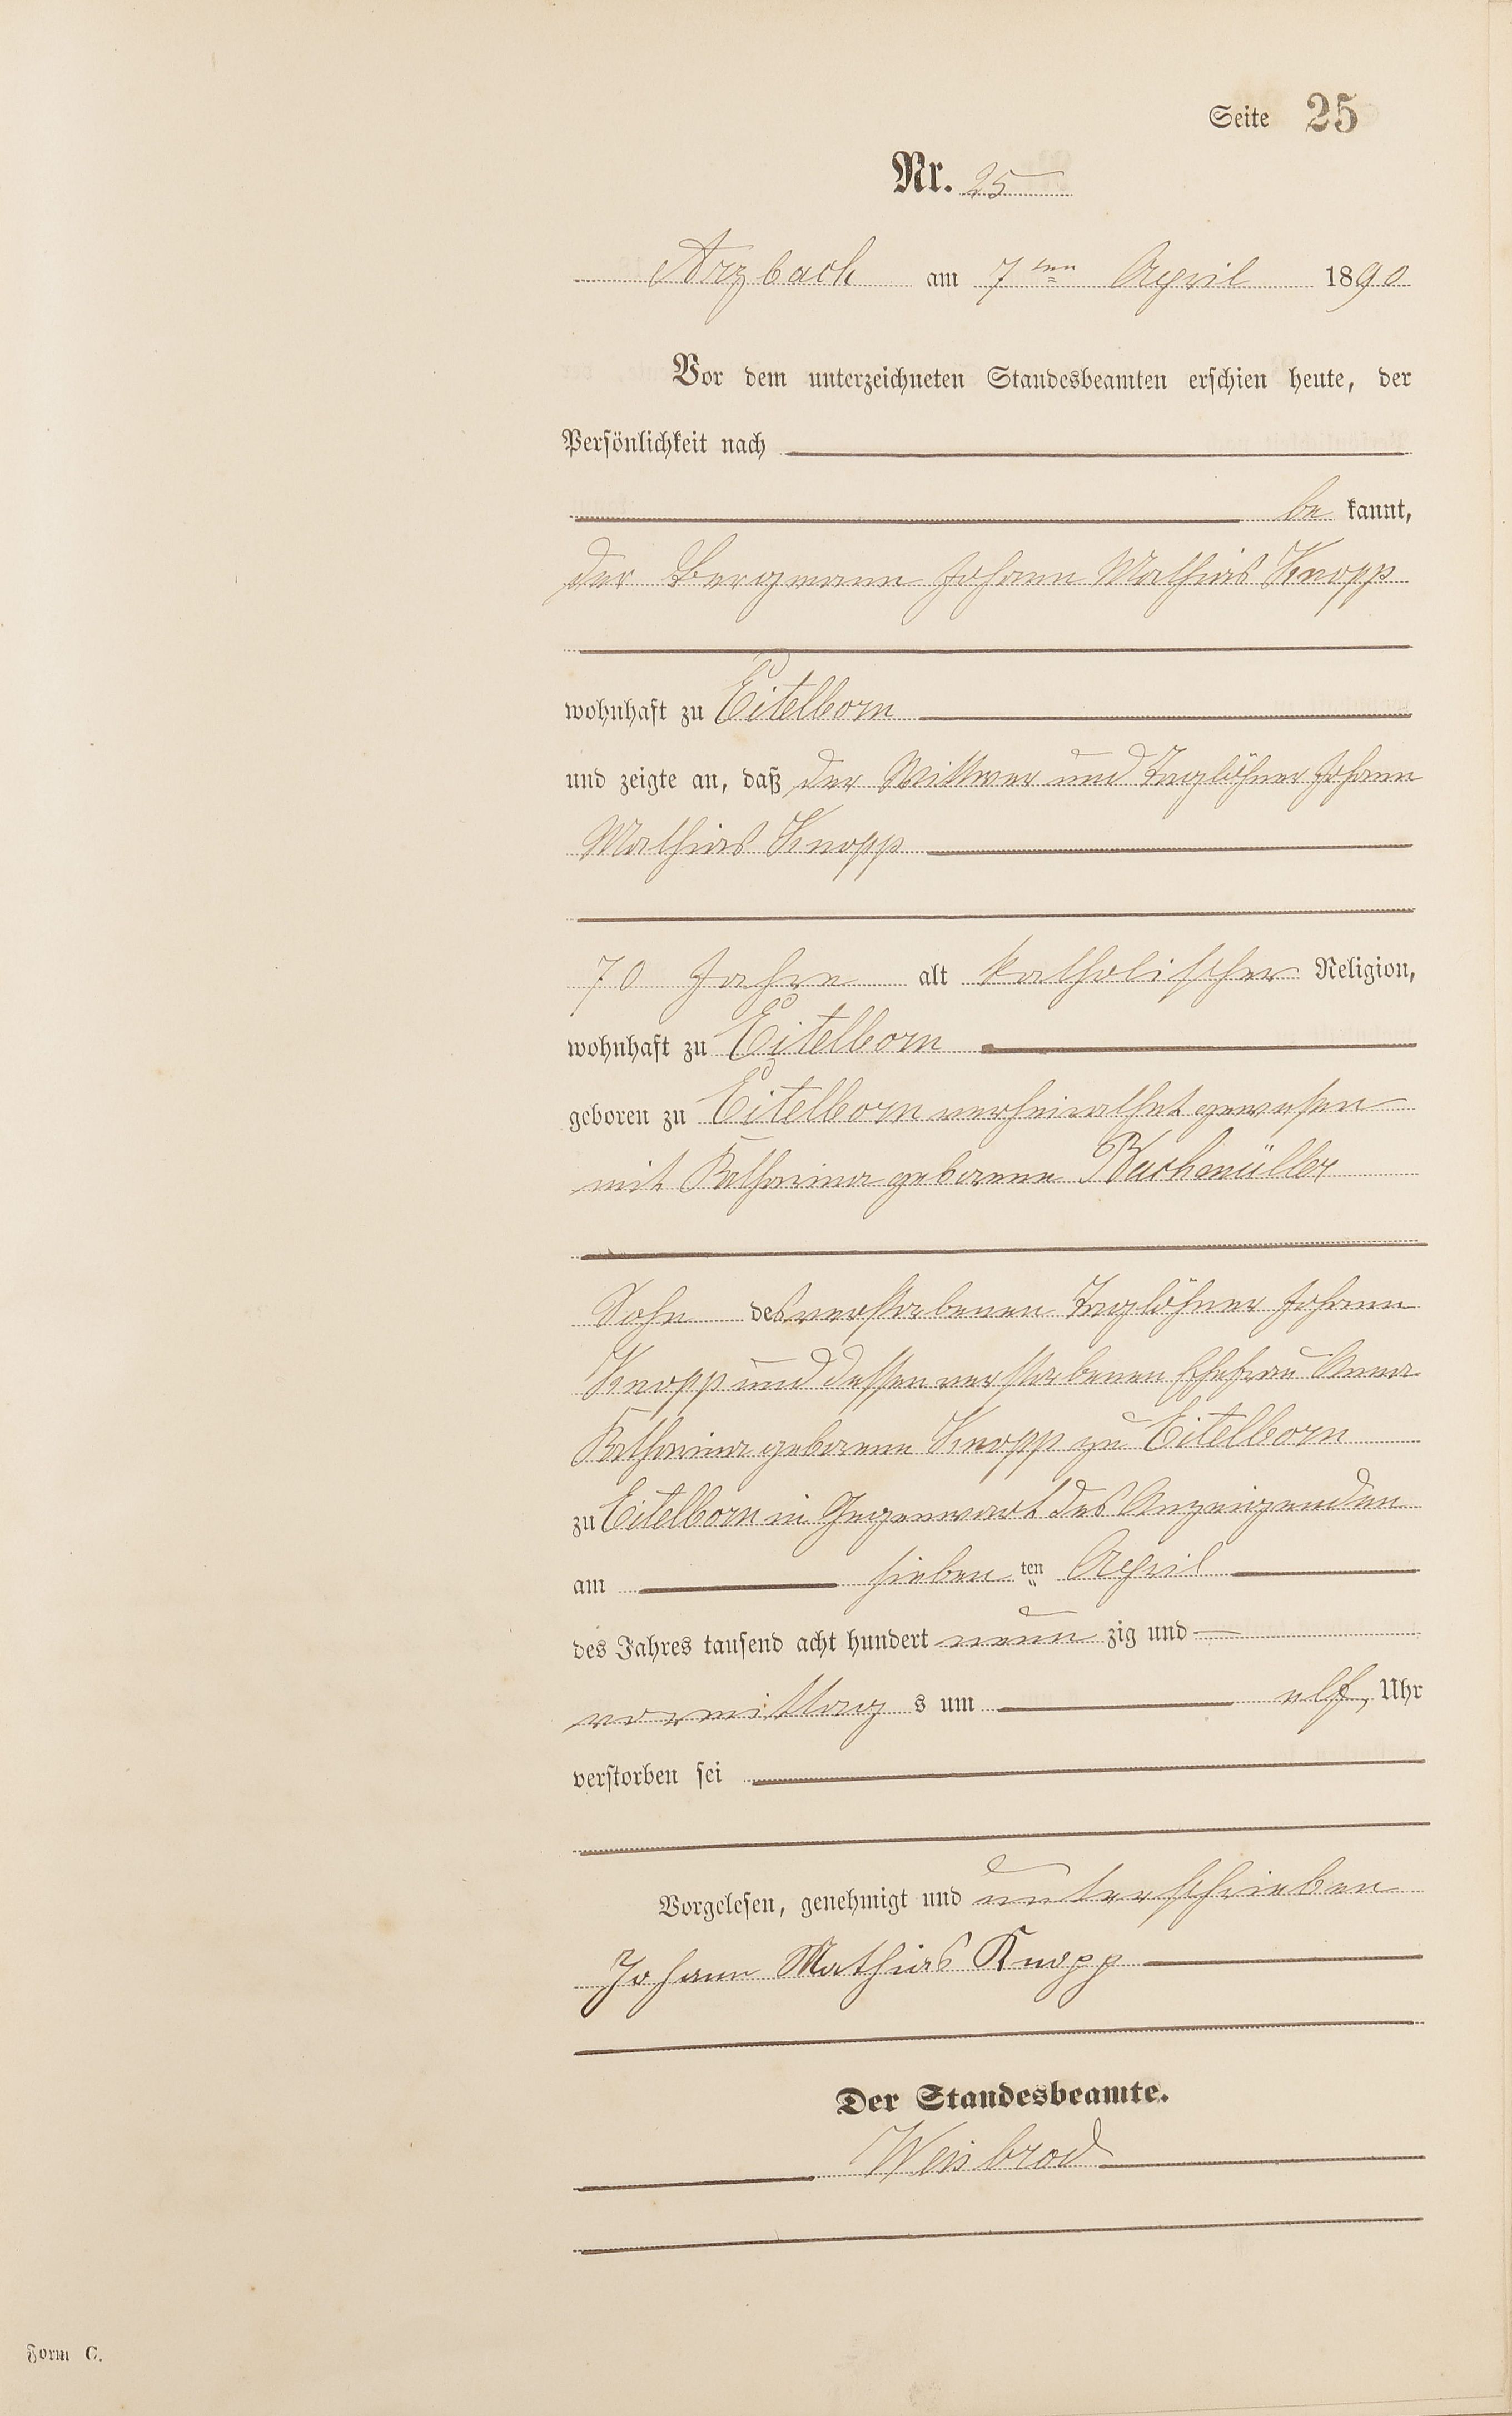 Seite 25
Nr. 25
Arzbach am 7ten April 1890
Vor dem unterzeichneten Standesbeamten erschien heute, der
Persönlichkeit nach
be kannt,
der Bergmann Johann Mathias Knopp
wohnhaft zu Eitelborn
und zeigte an, daß der Wittwer und Taglöhner Johann
Mathias Knopp
70 Jahre alt katholischer Religion,
wohnhaft zu Eitelborn
geboren zu Eitelborn verheirathet gewesen
mit Katharina geborene Bachmüller
Sohn des verstorbenen Taglöhner Johann
Knopp und dessen verstorbenen Ehefrau Anna
Katharina geborene Knopp zu Eitelborn
zu Eitelborn in Gegenwart des Anzeigenden
am sieben ten April
des Jahres tausend acht hundert neun zig und
vormittag s um elf Uhr
verstorben sei
Vorgelesen, genehmigt und unterschrieben
Johann Mathias Knopp
Der Standesbeamte.
Weisbrod
Form C.